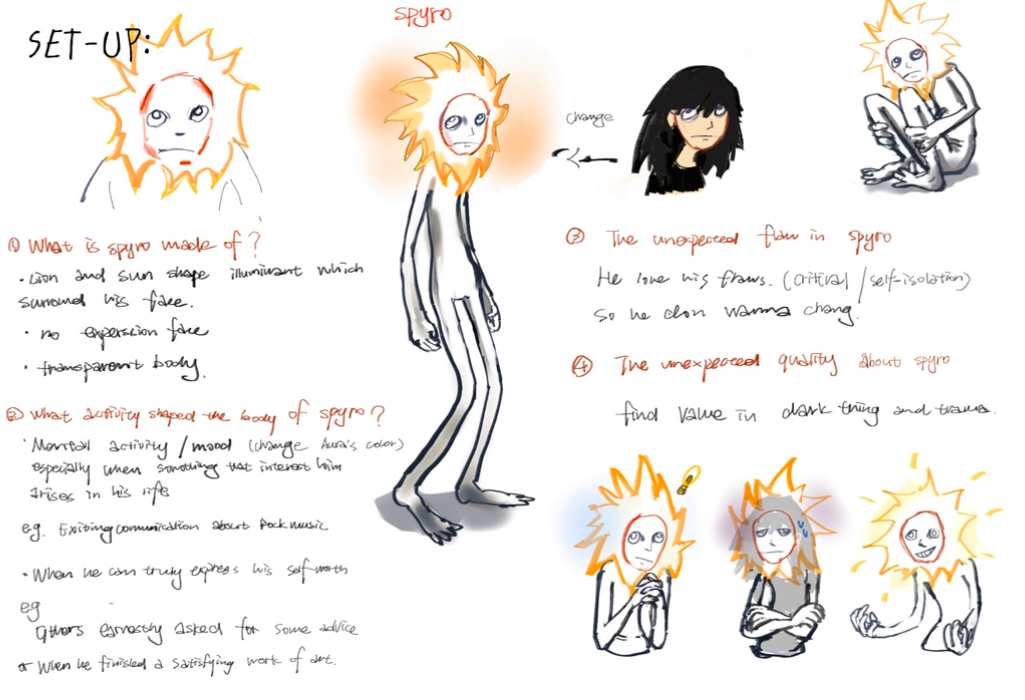 SET-UP:
spyro
change
① What is spyro made of?
· Lion and sun shape illuminant which
surround his face.
· no experssion face
· transparent body.
② What activity shaped the body of spyro?
· Mental activity / mood (change Aura's color)
especially when something that interest him
arises in his life
e.g. Exiting communication about Rock music
· When he can truly express his self worth
eg
Others earnestly asked for some advice
or When he finished a satisfying work of art.
③ The unexpected flaw in spyro
He love his flaws. (critical / self-isolation)
So he don wanna chang.
④ The unexpected quality about spyro
find value in dark thing and trama.